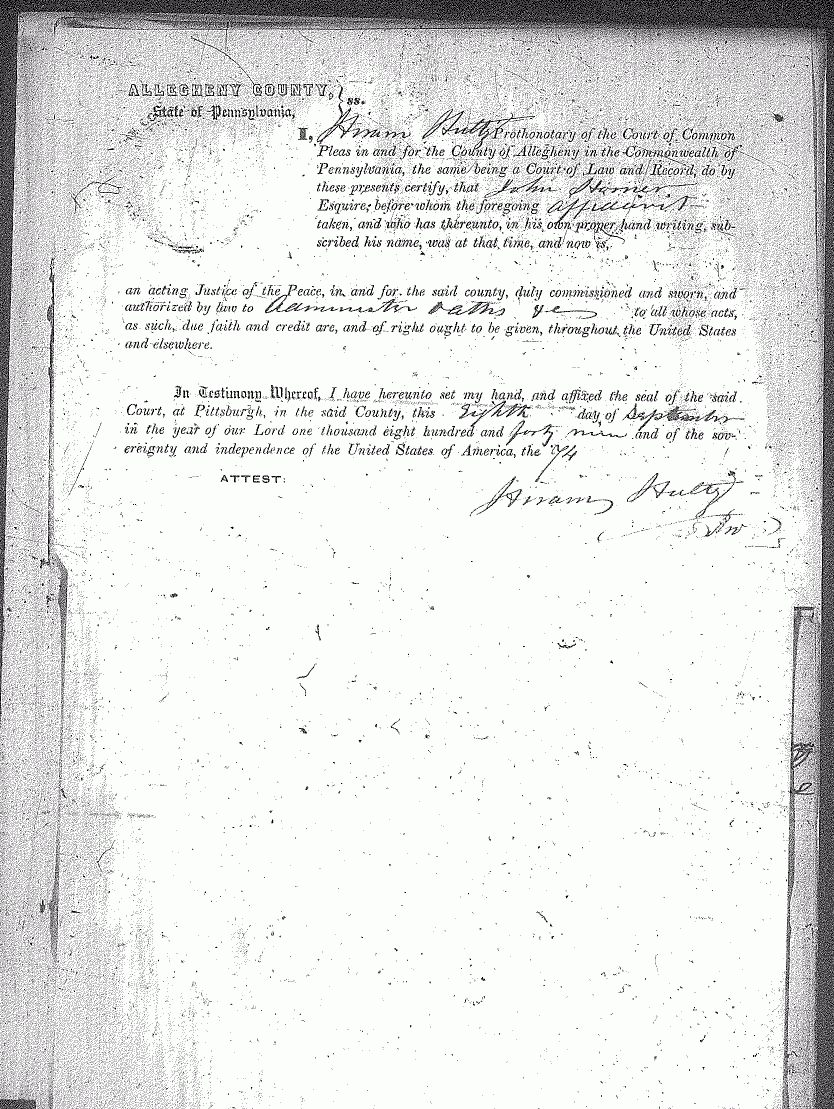 ALLEGHENY COUNTY, } ss.
State of Pennsylvania,
I, Hiram Hultz Prothonotary of the Court of Common
Pleas in and for the County of Allegheny in the Commonwealth of
Pennsylvania, the same being a Court of Law and Record, do by
these presents certify, that John Horner
Esquire, before whom the foregoing affidavit
taken, and who has thereunto, in his own proper hand writing, sub-
scribed his name, was at that time, and now is,
an acting Justice of the Peace, in and for the said county, duly commissioned and sworn, and
authorized by law to administer oaths &c to all whose acts,
as such, due faith and credit are, and of right ought to be given, throughout the United States
and elsewhere.
In Testimony Whereof, I have hereunto set my hand, and affixed the seal of the said
Court, at Pittsburgh, in the said County, this Eighth day of September
in the year of our Lord one thousand eight hundred and forty nine and of the sov-
ereignty and independence of the United States of America, the 74
ATTEST:
Hiram Hultz